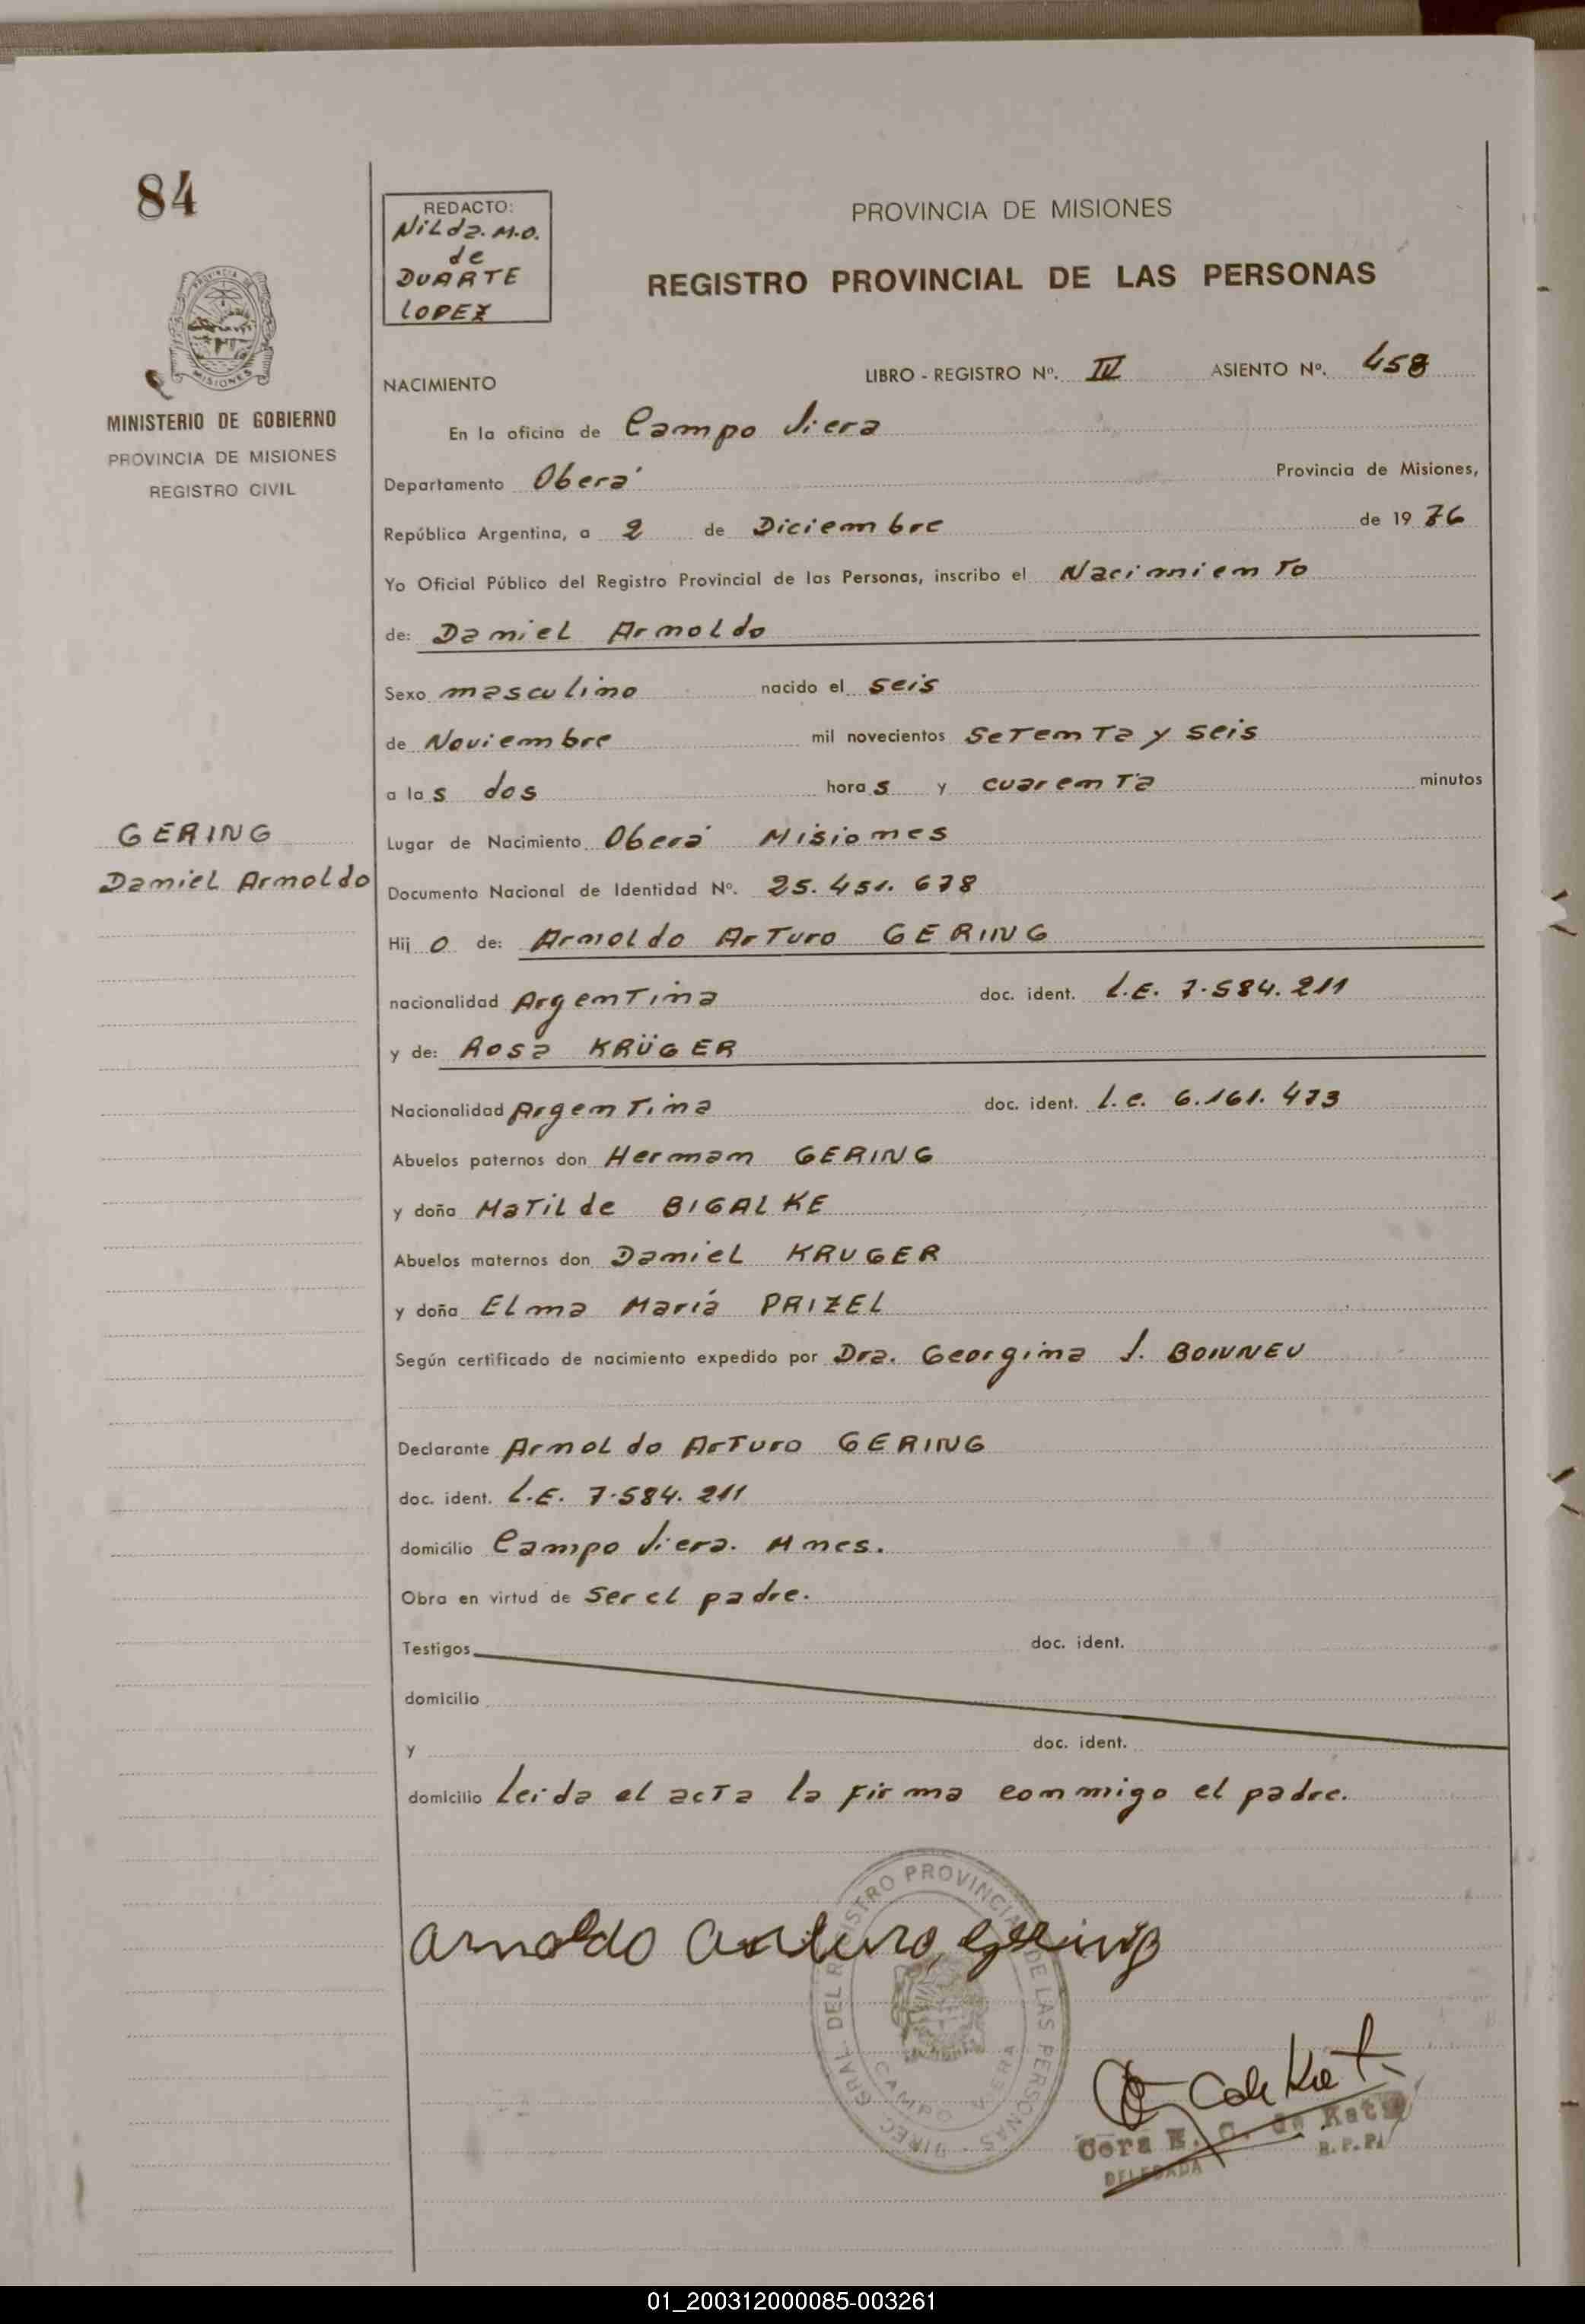 84
REDACTO:
Nilda. M.O.
de
DUARTE
LOPEZ
PROVINCIA DE MISIONES
REGISTRO PROVINCIAL DE LAS PERSONAS
MISIONES
MINISTERIO DE GOBIERNO
PROVINCIA DE MISIONES
REGISTRO CIVIL
NACIMIENTO LIBRO - REGISTRO Nº. IV ASIENTO Nº. 458
En la oficina de Campo Viera
Departamento Oberá Provincia de Misiones,
República Argentina, a 2 de Diciembre de 1976
Yo Oficial Público del Registro Provincial de las Personas, inscribo el Nacimiento
de: Daniel Arnoldo
Sexo masculino nacido el seis
de Noviembre mil novecientos setenta y seis
a las dos horas y cuarenta minutos
GERING
Daniel Arnoldo
Lugar de Nacimiento Oberá Misiones
Documento Nacional de Identidad Nº. 25.451.678
Hijo de: Arnoldo Arturo GERING
nacionalidad Argentina doc. ident. L.E. 7.584.211
y de: Rosa KRÜGER
Nacionalidad Argentina doc. ident. L.C. 6.161.473
Abuelos paternos don Herman GERING
y doña Matilde BIGALKE
Abuelos maternos don Daniel KRUGER
y doña Elma María PRIZEL
Según certificado de nacimiento expedido por Dra. Georgina J.
Declarante Arnoldo Arturo GERING
doc. ident. L.E. 7.584.211
domicilio Campo Viera. Mnes.
Obra en virtud de ser el padre.
Testigos doc. ident.
domicilio
y doc. ident.
domicilio Leida el acta la firma conmigo el padre.
Arnoldo Arturo Gering
DIREC. GRAL. DEL REGISTRO PROVINCIAL DE LAS PERSONAS
CAMPO VIERA
DELEGADA R.P.P.
01_200312000085-003261